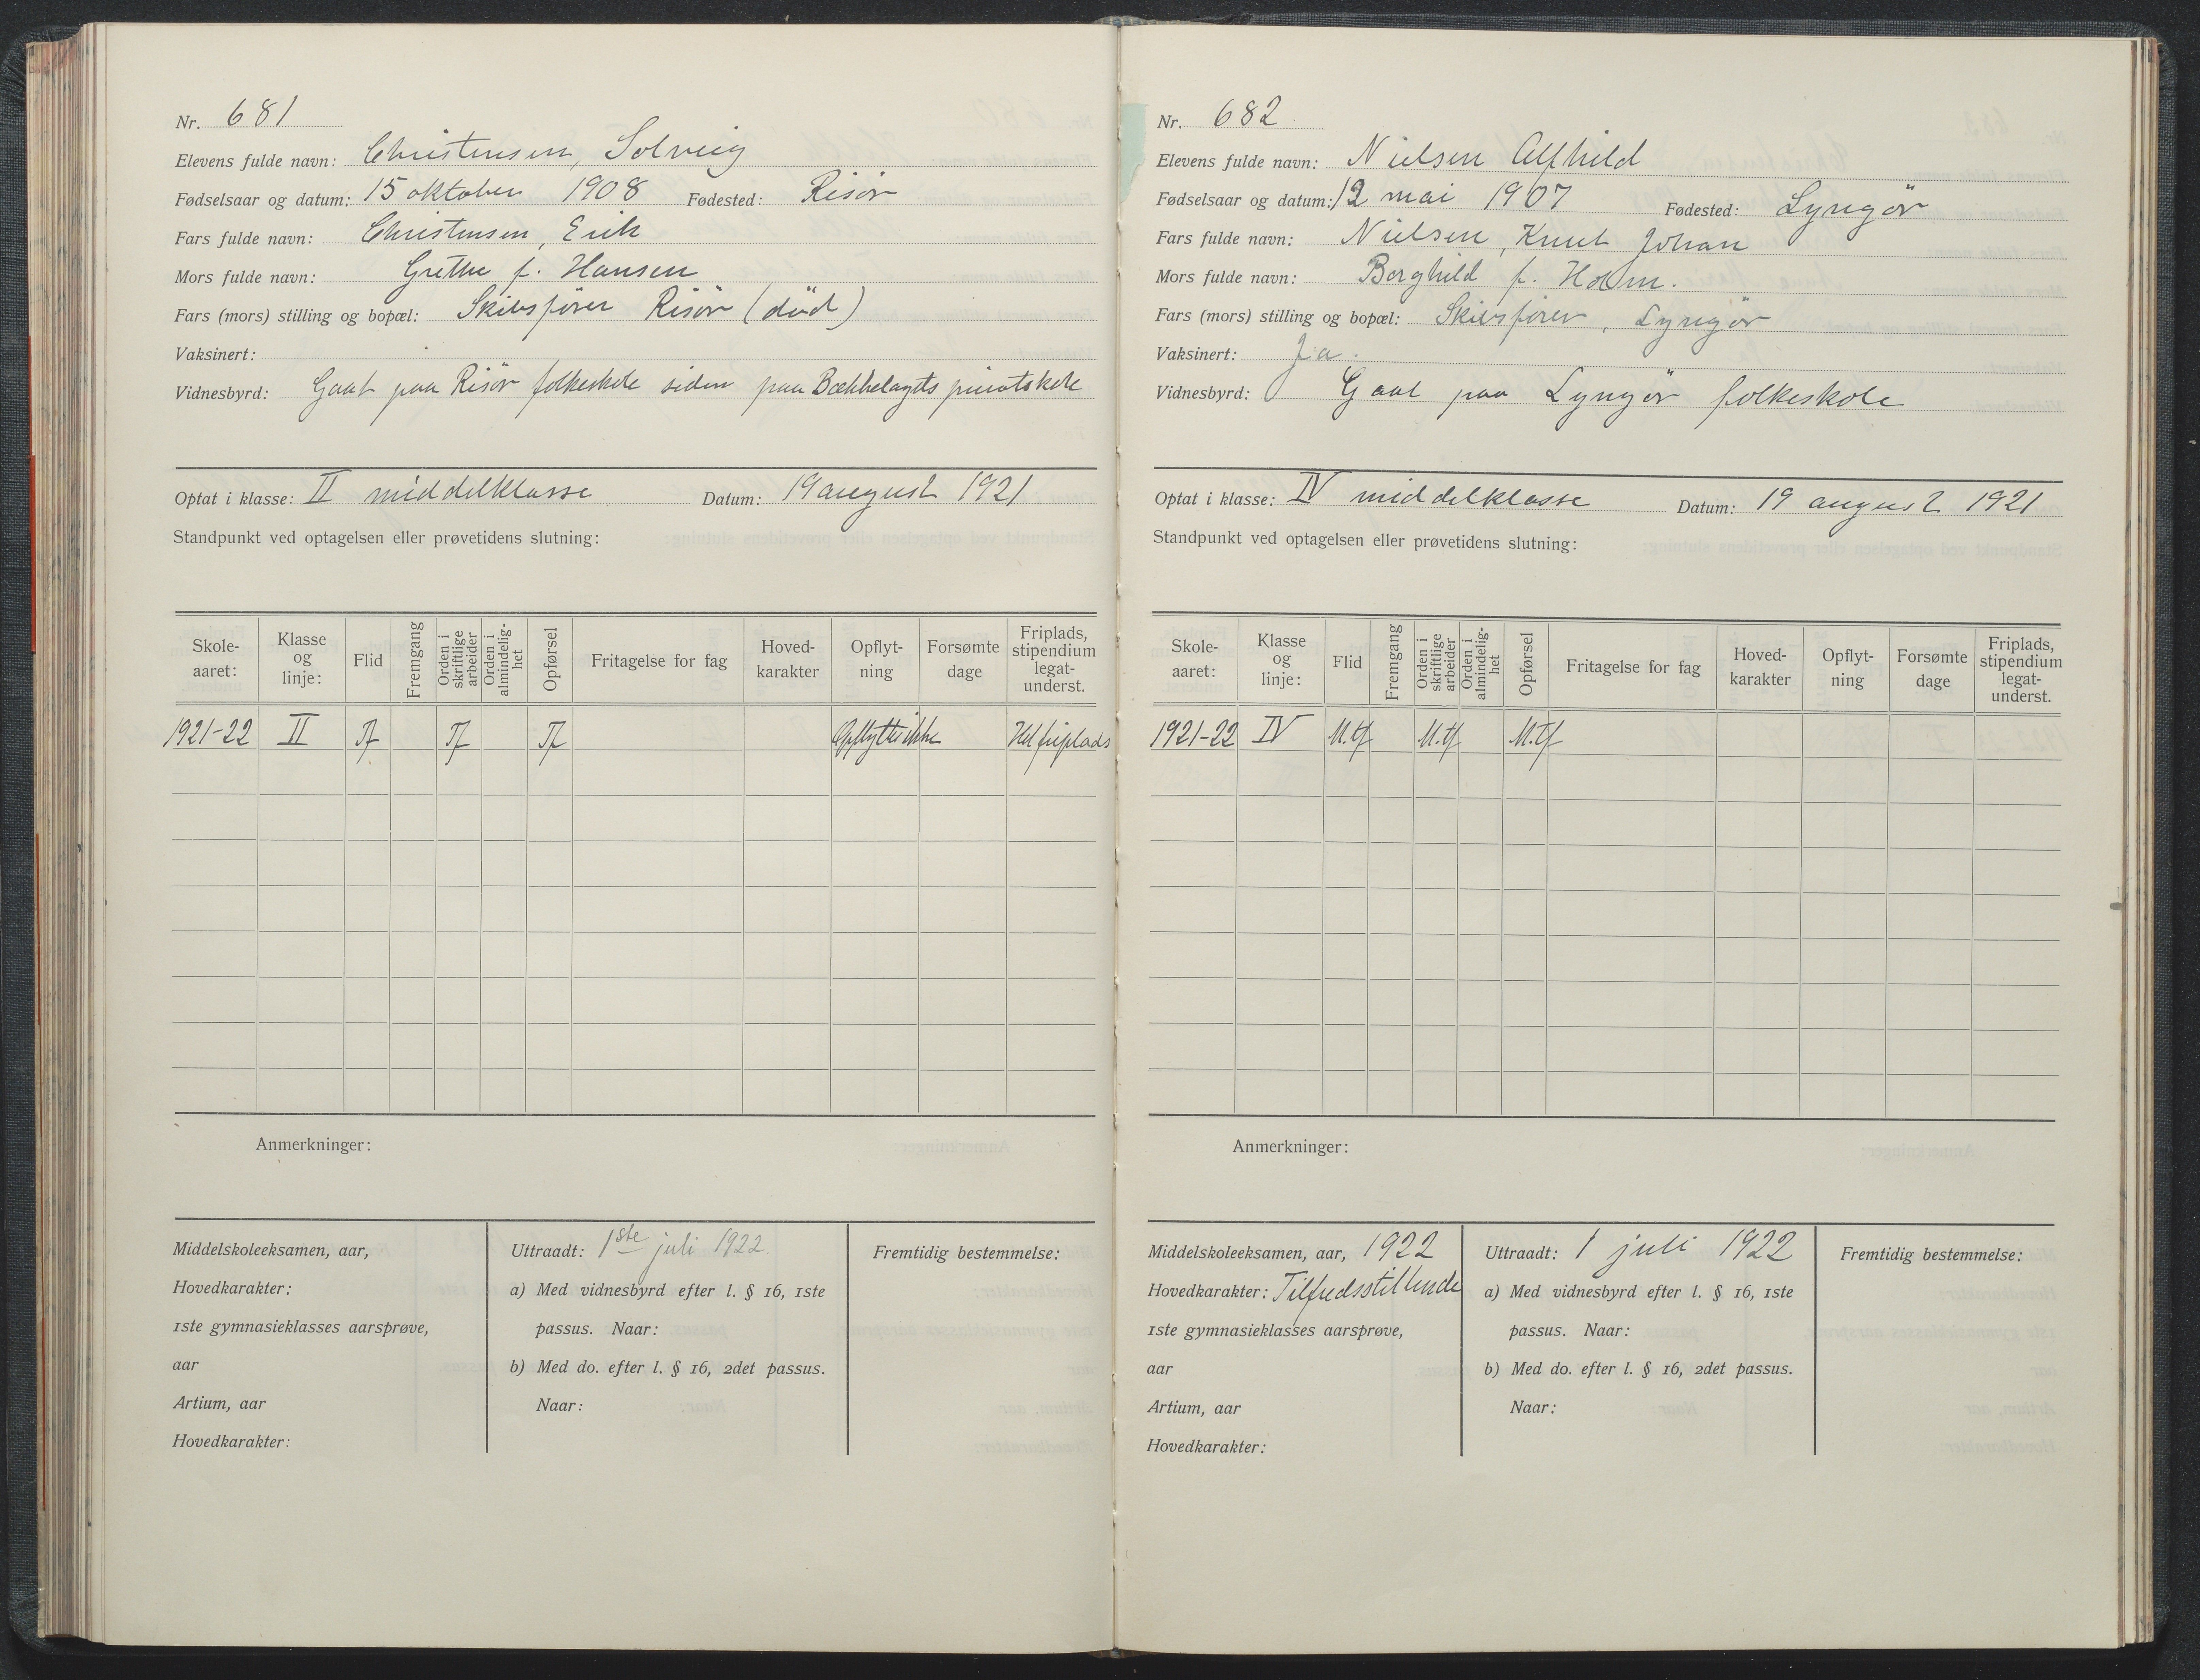 Nr. 681
Elevens fulde navn: Christensen, Solveig
Fødselsaar og datum: 15 oktober 1908 Fødested: Risör
Fars fulde navn: Christensen, Erik
Mors fulde navn: Grethe f. Hansen
Fars (mors) stilling og bopæl: Skibsfører Risör (död)
Vaksinert:
Vidnesbyrd: Gaat paa Risör folkeskole siden paa Bækkelagets privatskole
Optat i klasse: II middelklasse Datum: 19 august 1921
Standpunkt ved optagelsen eller prøvetidens slutning:
Skole-aaret: Klasse og linje: Flid Fremgang Orden i skriftlige arbeider Orden i almindelig-het Opførsel Fritagelse for fag Hoved-karakter Opflyt-ning Forsømte dage Friplads, stipendium legat-underst.
1921-22 II Tf Tf Tf Opflyttes ikke Hel friplads
Anmerkninger:
Middelskoleeksamen, aar,
Hovedkarakter:
1ste gymnasieklasses aarsprøve,
aar
Artium, aar
Hovedkarakter:
Uttraadt: 1ste juli 1922.
a) Med vidnesbyrd efter l. § 16, 1ste
passus. Naar:
b) Med do. efter l. § 16, 2det passus.
Naar:
Fremtidig bestemmelse:
Nr. 682
Elevens fulde navn: Nielsen Alfhild
Fødselsaar og datum: 12 mai 1907 Fødested: Lyngör
Fars fulde navn: Nielsen, Knut Johan
Mors fulde navn: Borghild f. Holm.
Fars (mors) stilling og bopæl: Skibsfører, Lyngör
Vaksinert: Ja.
Vidnesbyrd: Gaat paa Lyngör folkeskole
Optat i klasse: IV middelklasse Datum: 19 august 1921
Standpunkt ved optagelsen eller prøvetidens slutning:
Skole-aaret: Klasse og linje: Flid Fremgang Orden i skriftlige arbeider Orden i almindelig-het Opførsel Fritagelse for fag Hoved-karakter Opflyt-ning Forsømte dage Friplads, stipendium legat-underst.
1921-22 IV M.tf M.tf M.tf
Anmerkninger:
Middelskoleeksamen, aar, 1922
Hovedkarakter: Tilfredsstillende
1ste gymnasieklasses aarsprøve,
aar
Artium, aar
Hovedkarakter:
Uttraadt: 1 juli 1922
a) Med vidnesbyrd efter l. § 16, 1ste
passus. Naar:
b) Med do. efter l. § 16, 2det passus.
Naar:
Fremtidig bestemmelse: